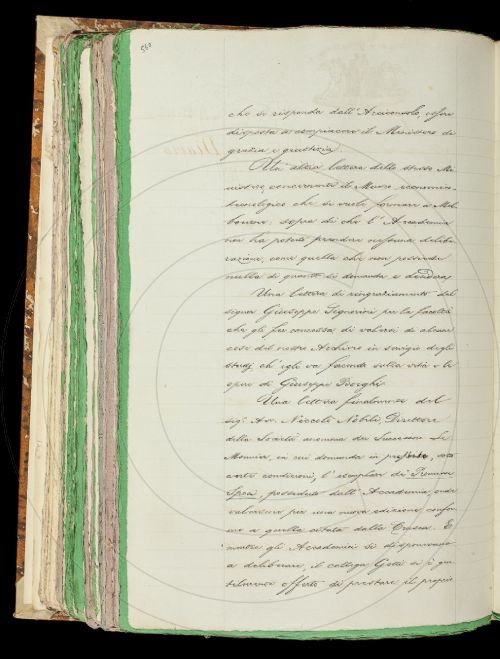 560
che si risponda dall'Arciconsolo, esser
disposta a compiacere il Ministero di
grazia e giustizia.
Un'altra lettera dello stesso Mi-
nistro, concernente il Museo economico-
tecnologico che si vuole formare a Mel-
bourne; sopra di che l'Accademia
non ha potuto prendere nessuna delibe-
razione, come quella che non possiede
nulla di quanto si domanda e desidera.
Una lettera di ringraziamento del
signor Giuseppe Signorini per la facoltà
che gli fu concessa, di valersi di alcune
cose del nostro Archivio in servigio degli
studj ch'egli va facendo sulla vita e le
opere di Giuseppe Borghi.
Una lettera finalmente del
sig.r Av. Niccolò Nobili, Direttore
della Società anonima dei Successori Le
Monnier, in cui domanda in prestito, sotto
certe condizioni, l'esemplare dei Promessi
Sposi, posseduto dall'Accademia, onde
valersene per una nuova edizione confor-
me a quella citata dalla Crusca. E
mentre gli Accademici si disponevano
a deliberare, il collega Gotti si è gen-
tilmente offerto di prestare il proprio